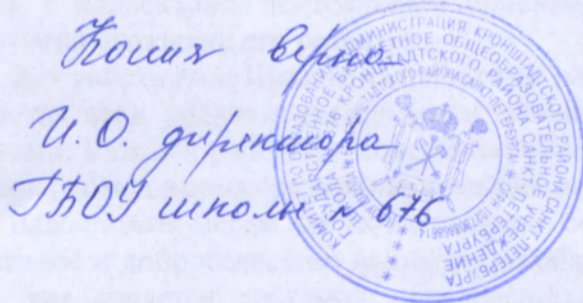 Копия верна
И.О. директора
ГБОУ школы № 676
КОМИТЕТ ПО ОБРАЗОВАНИЮ АДМИНИСТРАЦИЯ КРОНШТАДТСКОГО РАЙОНА САНКТ-ПЕТЕРБУРГА
ГОСУДАРСТВЕННОЕ БЮДЖЕТНОЕ ОБЩЕОБРАЗОВАТЕЛЬНОЕ УЧРЕЖДЕНИЕ
ШКОЛА № 676 КРОНШТАДТСКОГО РАЙОНА САНКТ-ПЕТЕРБУРГА